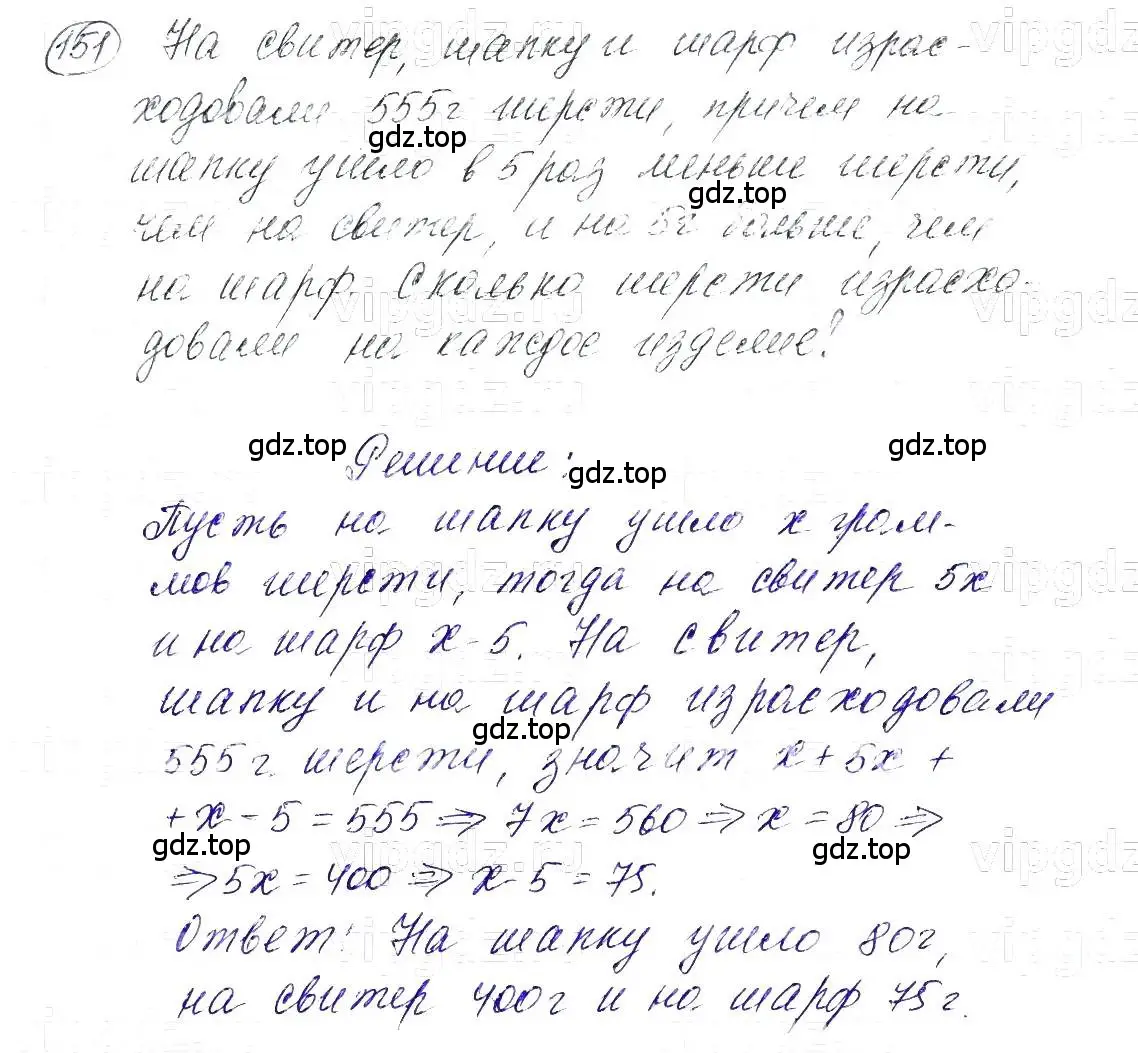 151 На свитер, шапку и шарф израс-
ходовали 555г шерсти, причем на
шапку ушло в 5 раз меньше шерсти,
чем на свитер, и на 5г больше, чем
на шарф. Сколько шерсти израсхо-
довали на каждое изделие?
Решение:
Пусть на шапку ушло x грам-
мов шерсти, тогда на свитер 5x
и на шарф x-5. На свитер,
шапку и на шарф израсходовали
555г шерсти, значит x+5x+
+x-5=555 => 7x=560 => x=80 =>
=> 5x=400 => x-5=75.
Ответ: На шапку ушло 80г,
на свитер 400г и на шарф 75г.
gdz.top
gdz.top
gdz.top
gdz.top
gdz.top
gdz.top
gdz.top
gdz.top
vipgdz.ru